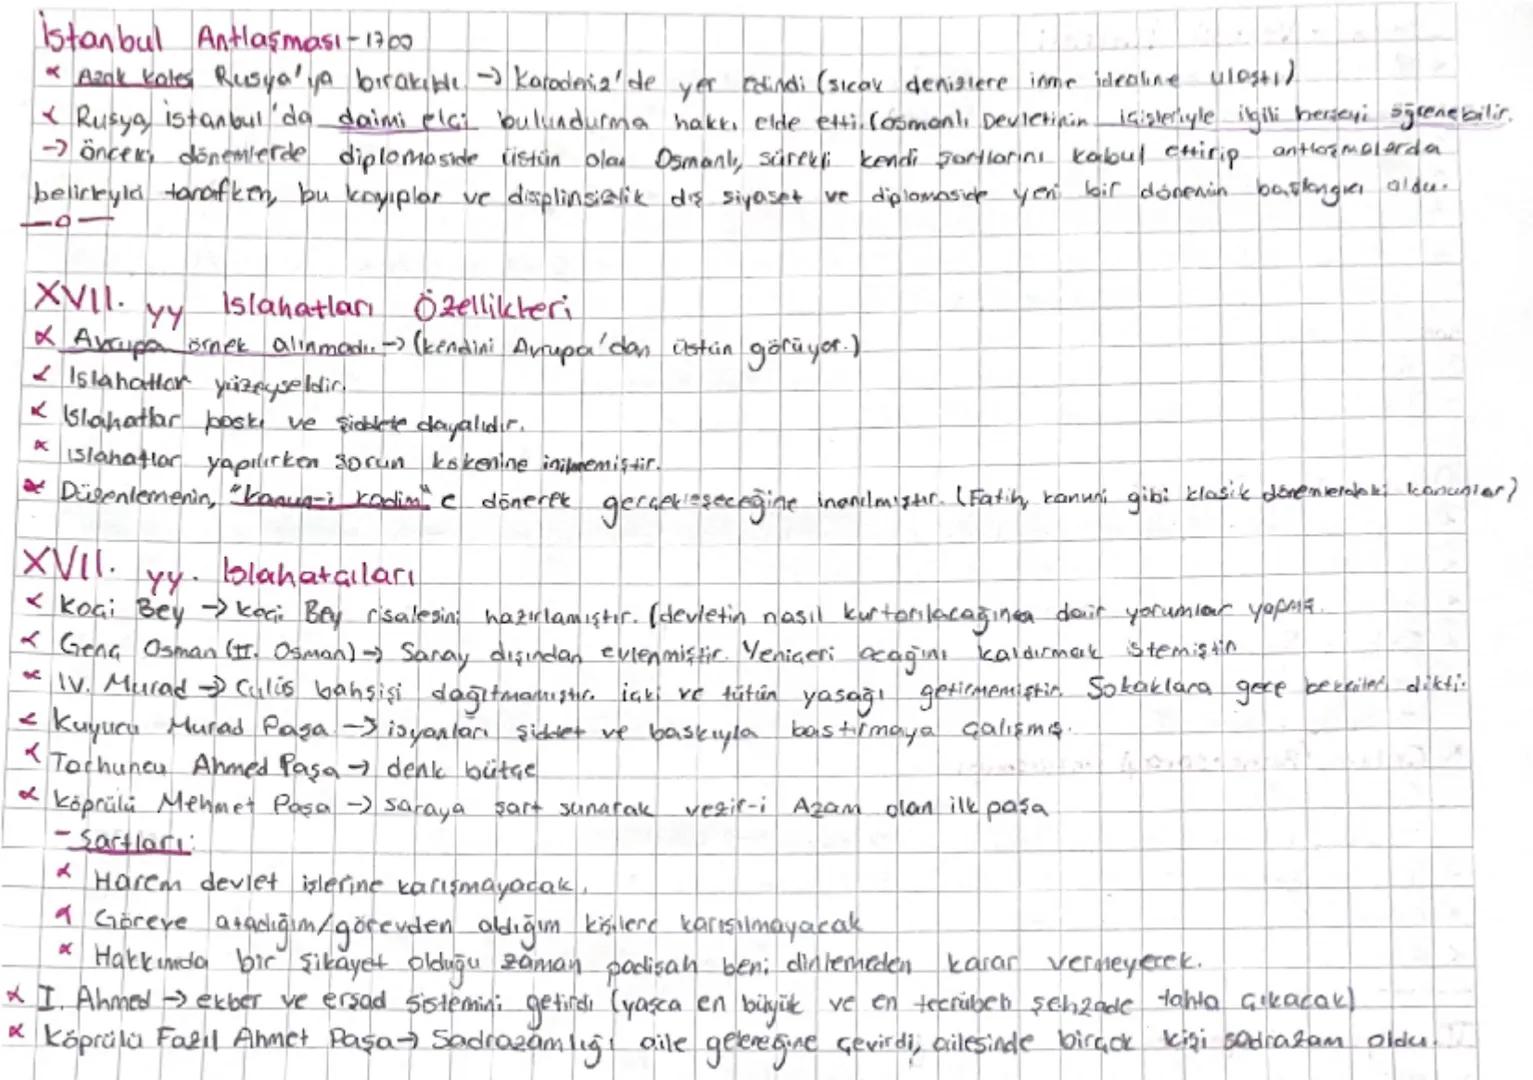 İstanbul Antlaşması - 1700
Azak kalesi Rusya'ya bırakıldı. → Karadeniz'de yer edindi (sıcak denizlere inme idealine ulaştı)
Rusya, istanbul'da daimi elçi bulundurma hakkı elde etti. (Osmanlı Devletinin içişleriyle ilgili herşeyi öğrenebilir.
→ önceki dönemlerde diplomaside üstün olan Osmanlı, sürekli kendi şartlarını kabul ettirip antlaşmalarda
belirleyici tarafken, bu kayıplar ve disiplinsizlik dış siyaset ve diplomaside yeni bir dönemin başlangıcı oldu.
XVII. yy Islahatları Özellikleri
Avrupa örnek alınmadı. → (kendini Avrupa'dan üstün görüyor.)
Islahatlar yüzeyseldir.
Islahatlar baskı ve şiddete dayalıdır.
ıslahatlar yapılırken sorun kökenine inilmemiştir.
Düzenlemenin, "kanun-i kadim" e dönerek gerçekleşeceğine inanılmıştır. (Fatih, kanuni gibi klasik dönemlerdeki kanunlar)
XVII. yy. Islahatçıları
Koçi Bey → Koçi Bey risalesini hazırlamıştır. (devletin nasıl kurtarılacağına dair yorumlar yapmış.
Genç Osman (II. Osman) → Saray dışından evlenmiştir. Yeniçeri ocağını kaldırmak istemiştir
IV. Murad → Cülüs bahşişi dağıtmamıştır. içki ve tütün yasağı getirmemiştir. Sokaklara gece bekçileri dikti.
Kuyucu Murad Paşa → isyanları şiddet ve baskıyla bastırmaya çalışmış.
Tarhuncu Ahmed Paşa → denk bütçe
Köprülü Mehmet Paşa → saraya şart sunarak vezir-i Azam olan ilk paşa
- Şartları:
Harem devlet işlerine karışmayacak.
Göreve atadığım/görevden aldığım kişilere karışılmayacak
Hakkımda bir şikayet olduğu zaman padişah beni dinlemeden karar vermeyecek.
I. Ahmed → ekber ve erşad sistemini getirdi (yaşca en büyük ve en tecrübeli şehzade tahta çıkacak)
Köprülü Fazıl Ahmet Paşa → Sadrazamlığı aile geleneğine çevirdi, ailesinde birçok kişi sadrazam oldu.